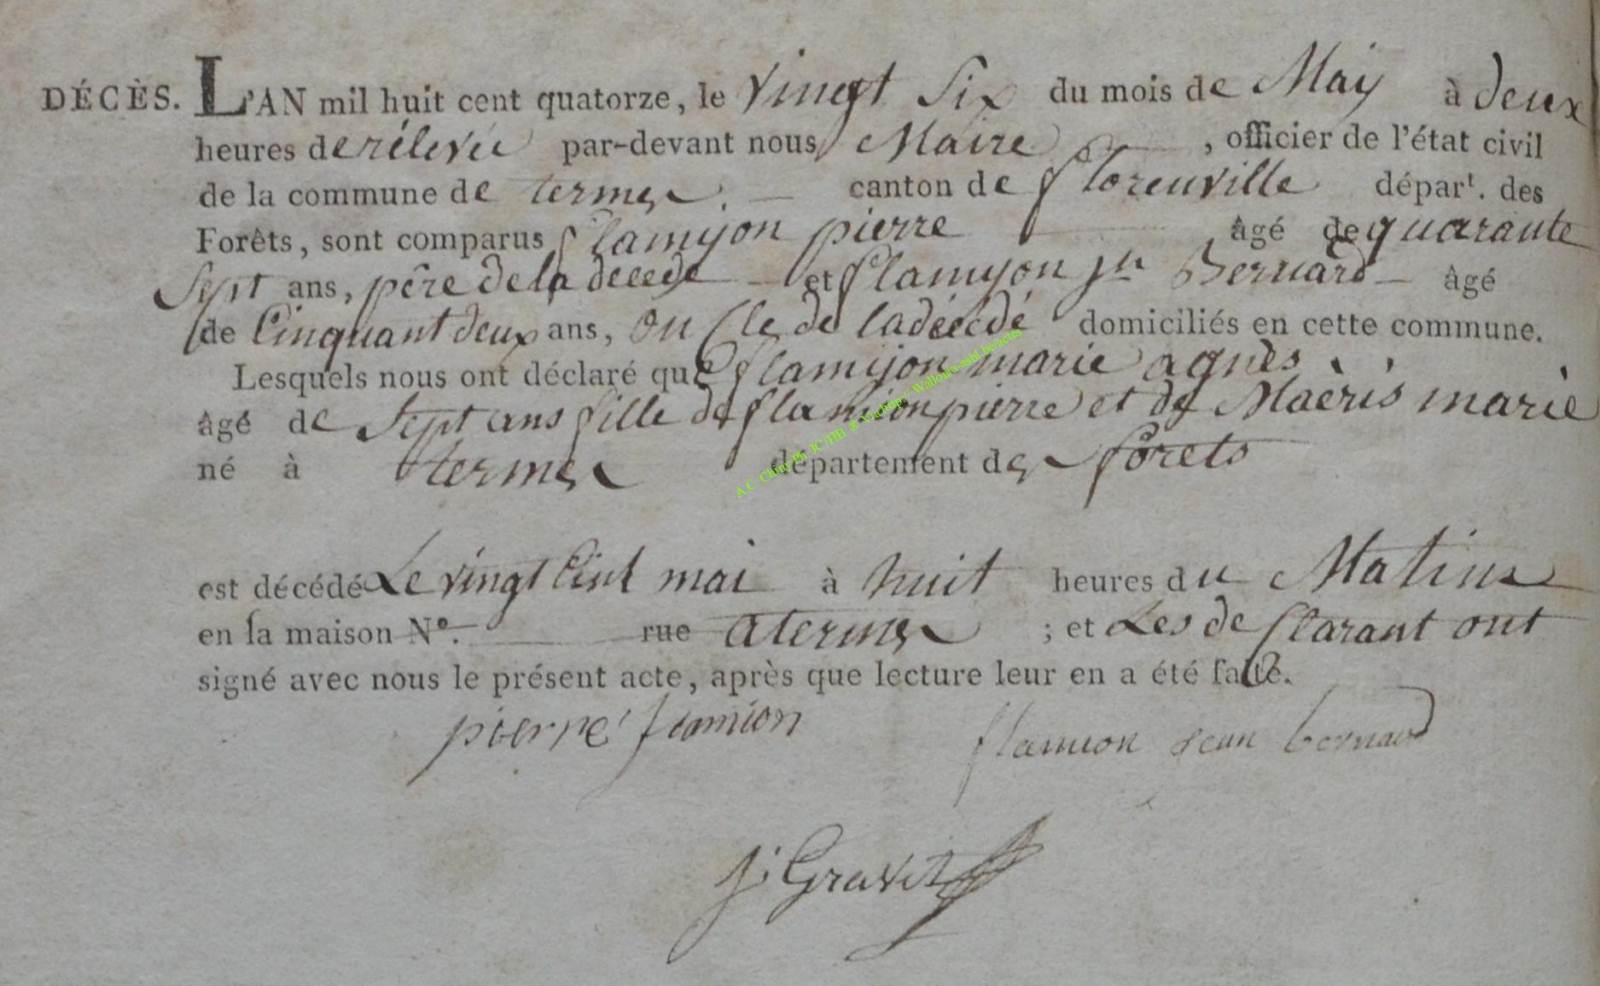 DÉCÈS. L'AN mil huit cent quatorze, le vingt Six du mois de Maÿ à deux
heures de rélevée par-devant nous Maire, officier de l'état civil
de la commune de termes. canton de florenville dépar^t. des
Forêts, sont comparus flamijon pierre âgé de quarante
Sept ans, pêre de la décédé et flamyon jn Bernard âgé
de Cinquant deux ans, on Cle de la décédé domiciliés en cette commune.
Lesquels nous ont déclaré que flamijon marie agnès
âgé de Sept ans fille de flamion pierre et de Marie
né à termes département des forets
est décédé Le vingt Cint mai à huit heures du Matins
en sa maison N°. rue a termes ; et Les de Clarant ont
signé avec nous le présent acte, après que lecture leur en a été faite.
pierre flamion flamion jean bernard
J: Gravet